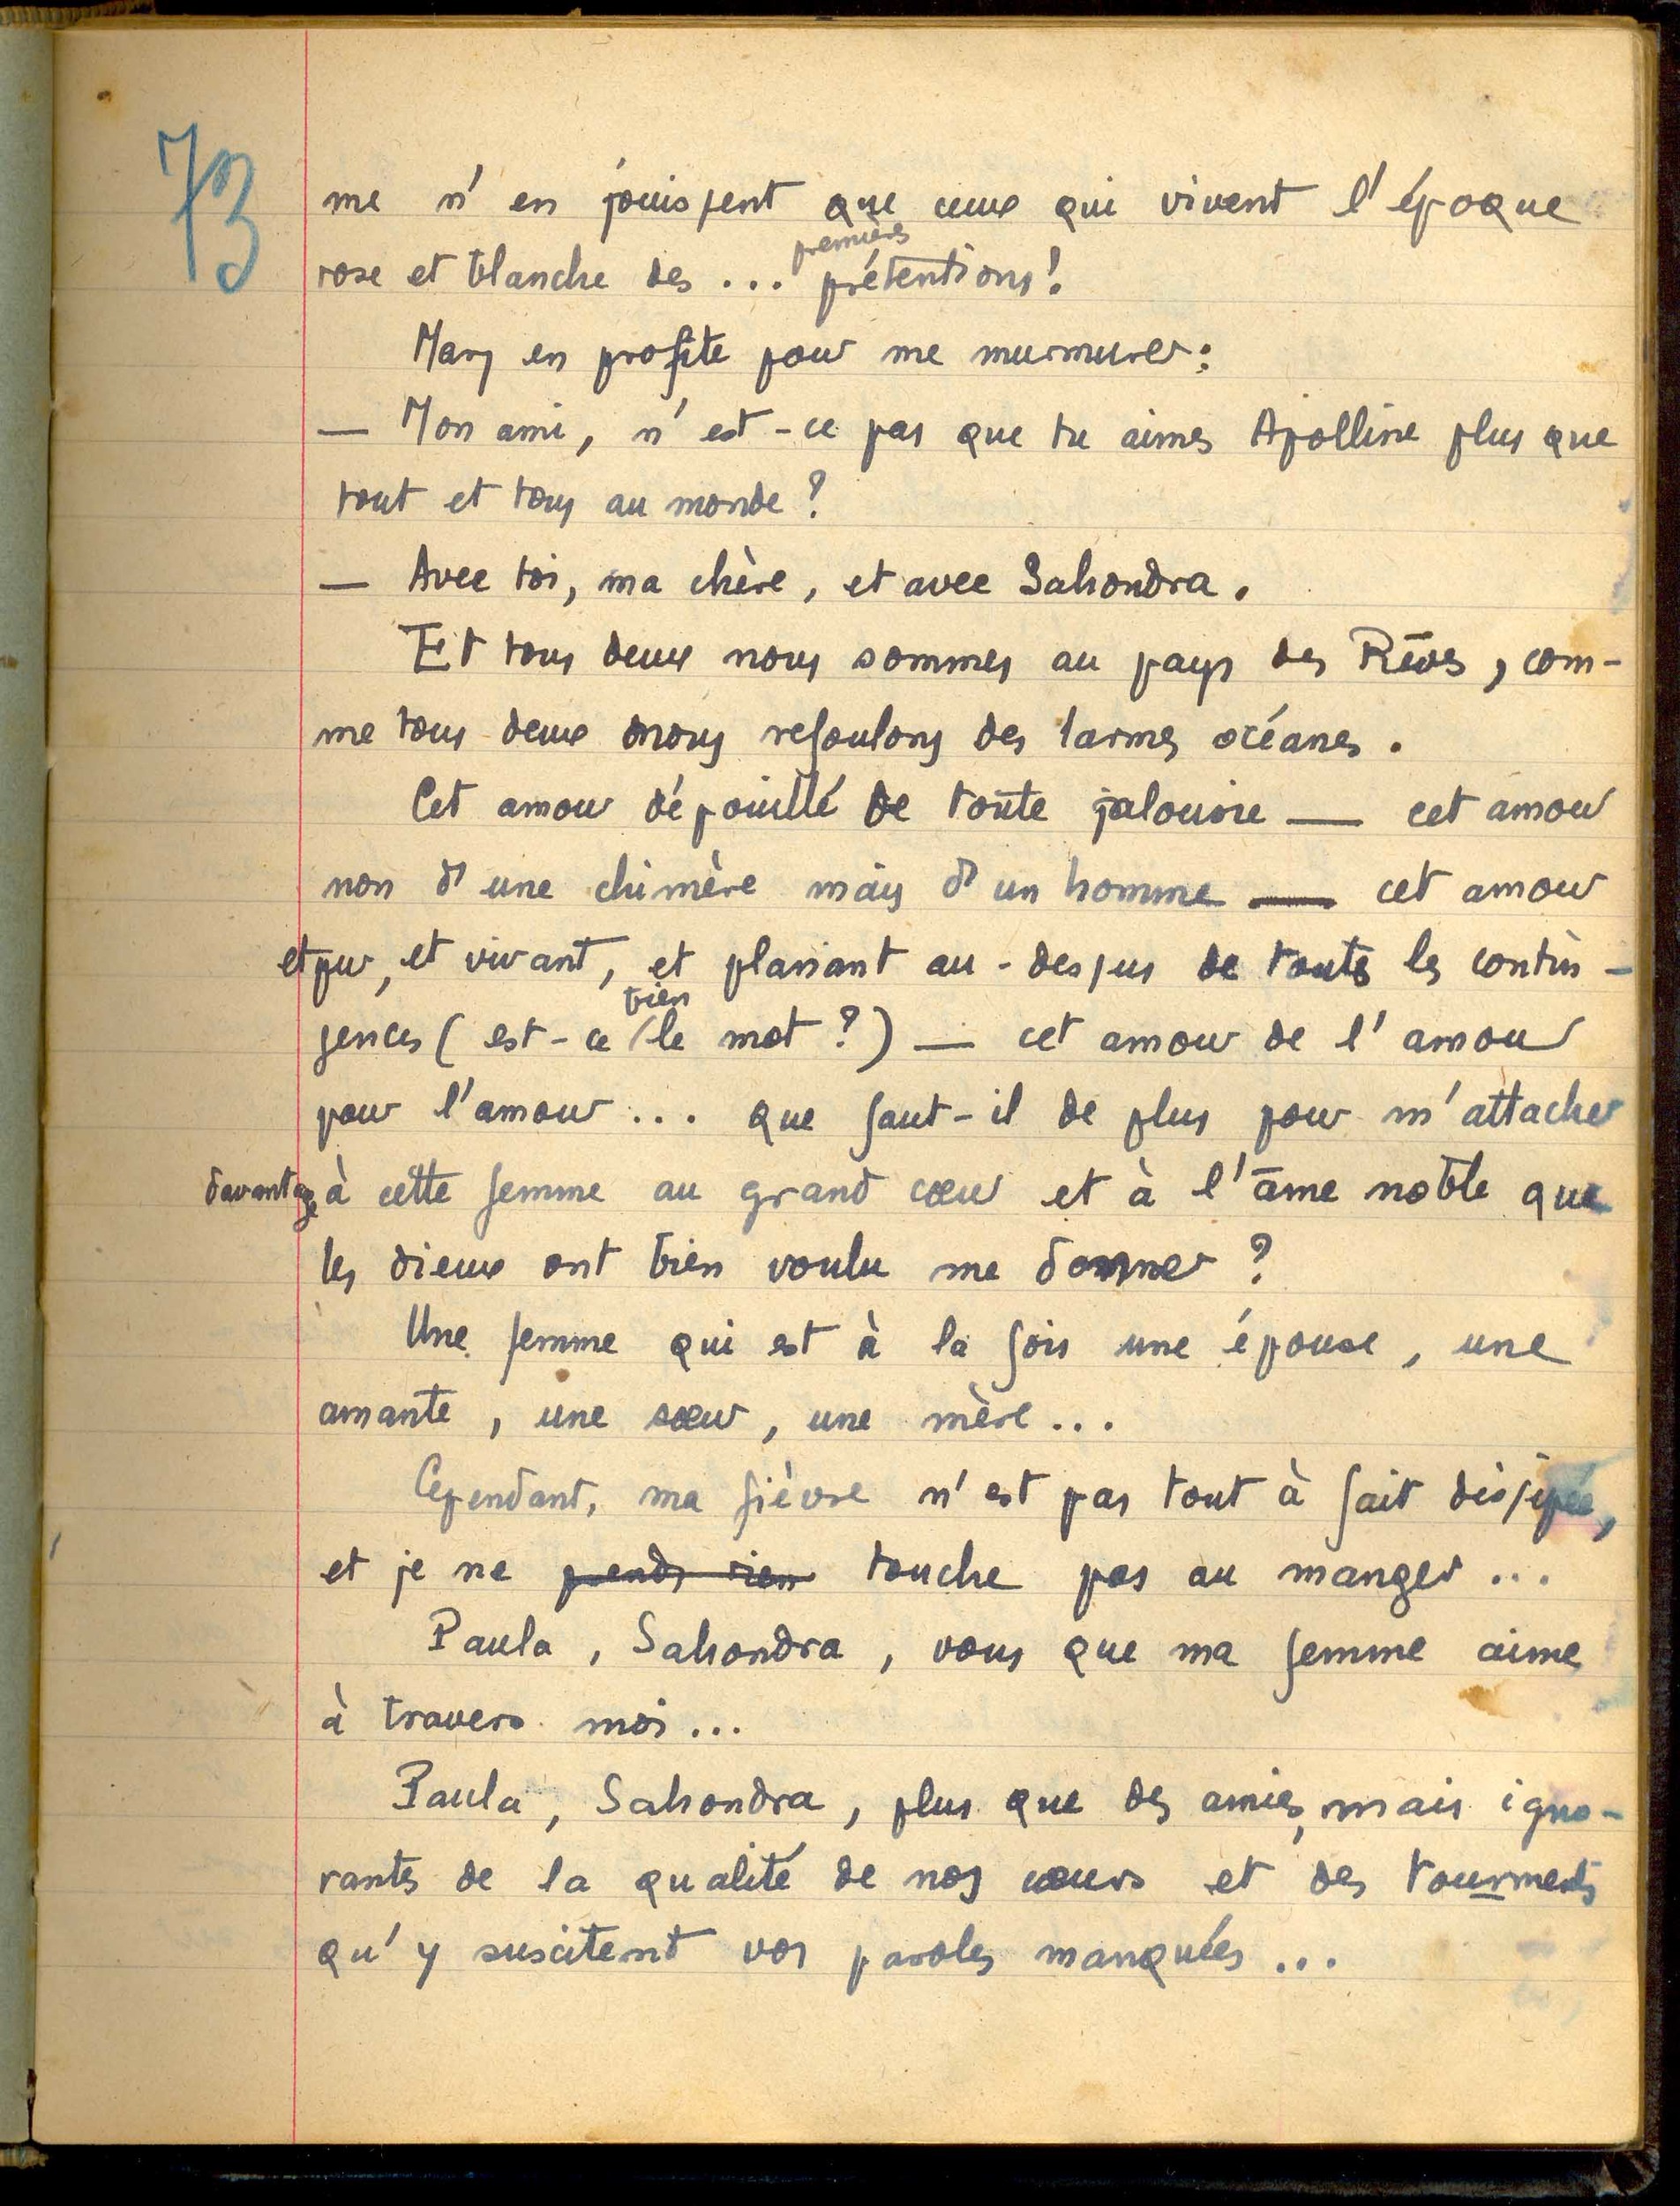 73
me n'en jouissent que ceux qui vivent l'époque
premières
rose et blanche des ... prétentions!
Mary en profite pour me murmurer:
— Mon ami, n'est-ce pas que tu aimes Apolline plus que
tout et tous au monde?
— Avec toi, ma chère, et avec Sahondra.
Et tous deux nous sommes au pays des Rêves, com-
me tous deux nous refoulons des larmes océanes.
Cet amour dépouillé de toute jalousie — cet amour
non d'une chimère mais d'un homme — cet amour
et pur, et vivant, et planant au-dessus de toutes les contin-
bien
gences (est-ce / le mot?) — cet amour de l'amour
pour l'amour ... que faut-il de plus pour m'attacher
davantage à cette femme au grand cœur et à l'âme noble que
les dieux ont bien voulu me donner?
Une femme qui est à la fois une épouse, une
amante, une sœur, une mère...
Cependant, ma fièvre n'est pas tout à fait dissipée,
et je ne prends rien touche pas au manger ...
Paula, Sahondra, vous que ma femme aime
à travers moi ...
Paula, Sahondra, plus que des amies, mais igno-
rantes de la qualité de nos cœurs et des tourments
qu'y suscitent vos paroles manquées ...